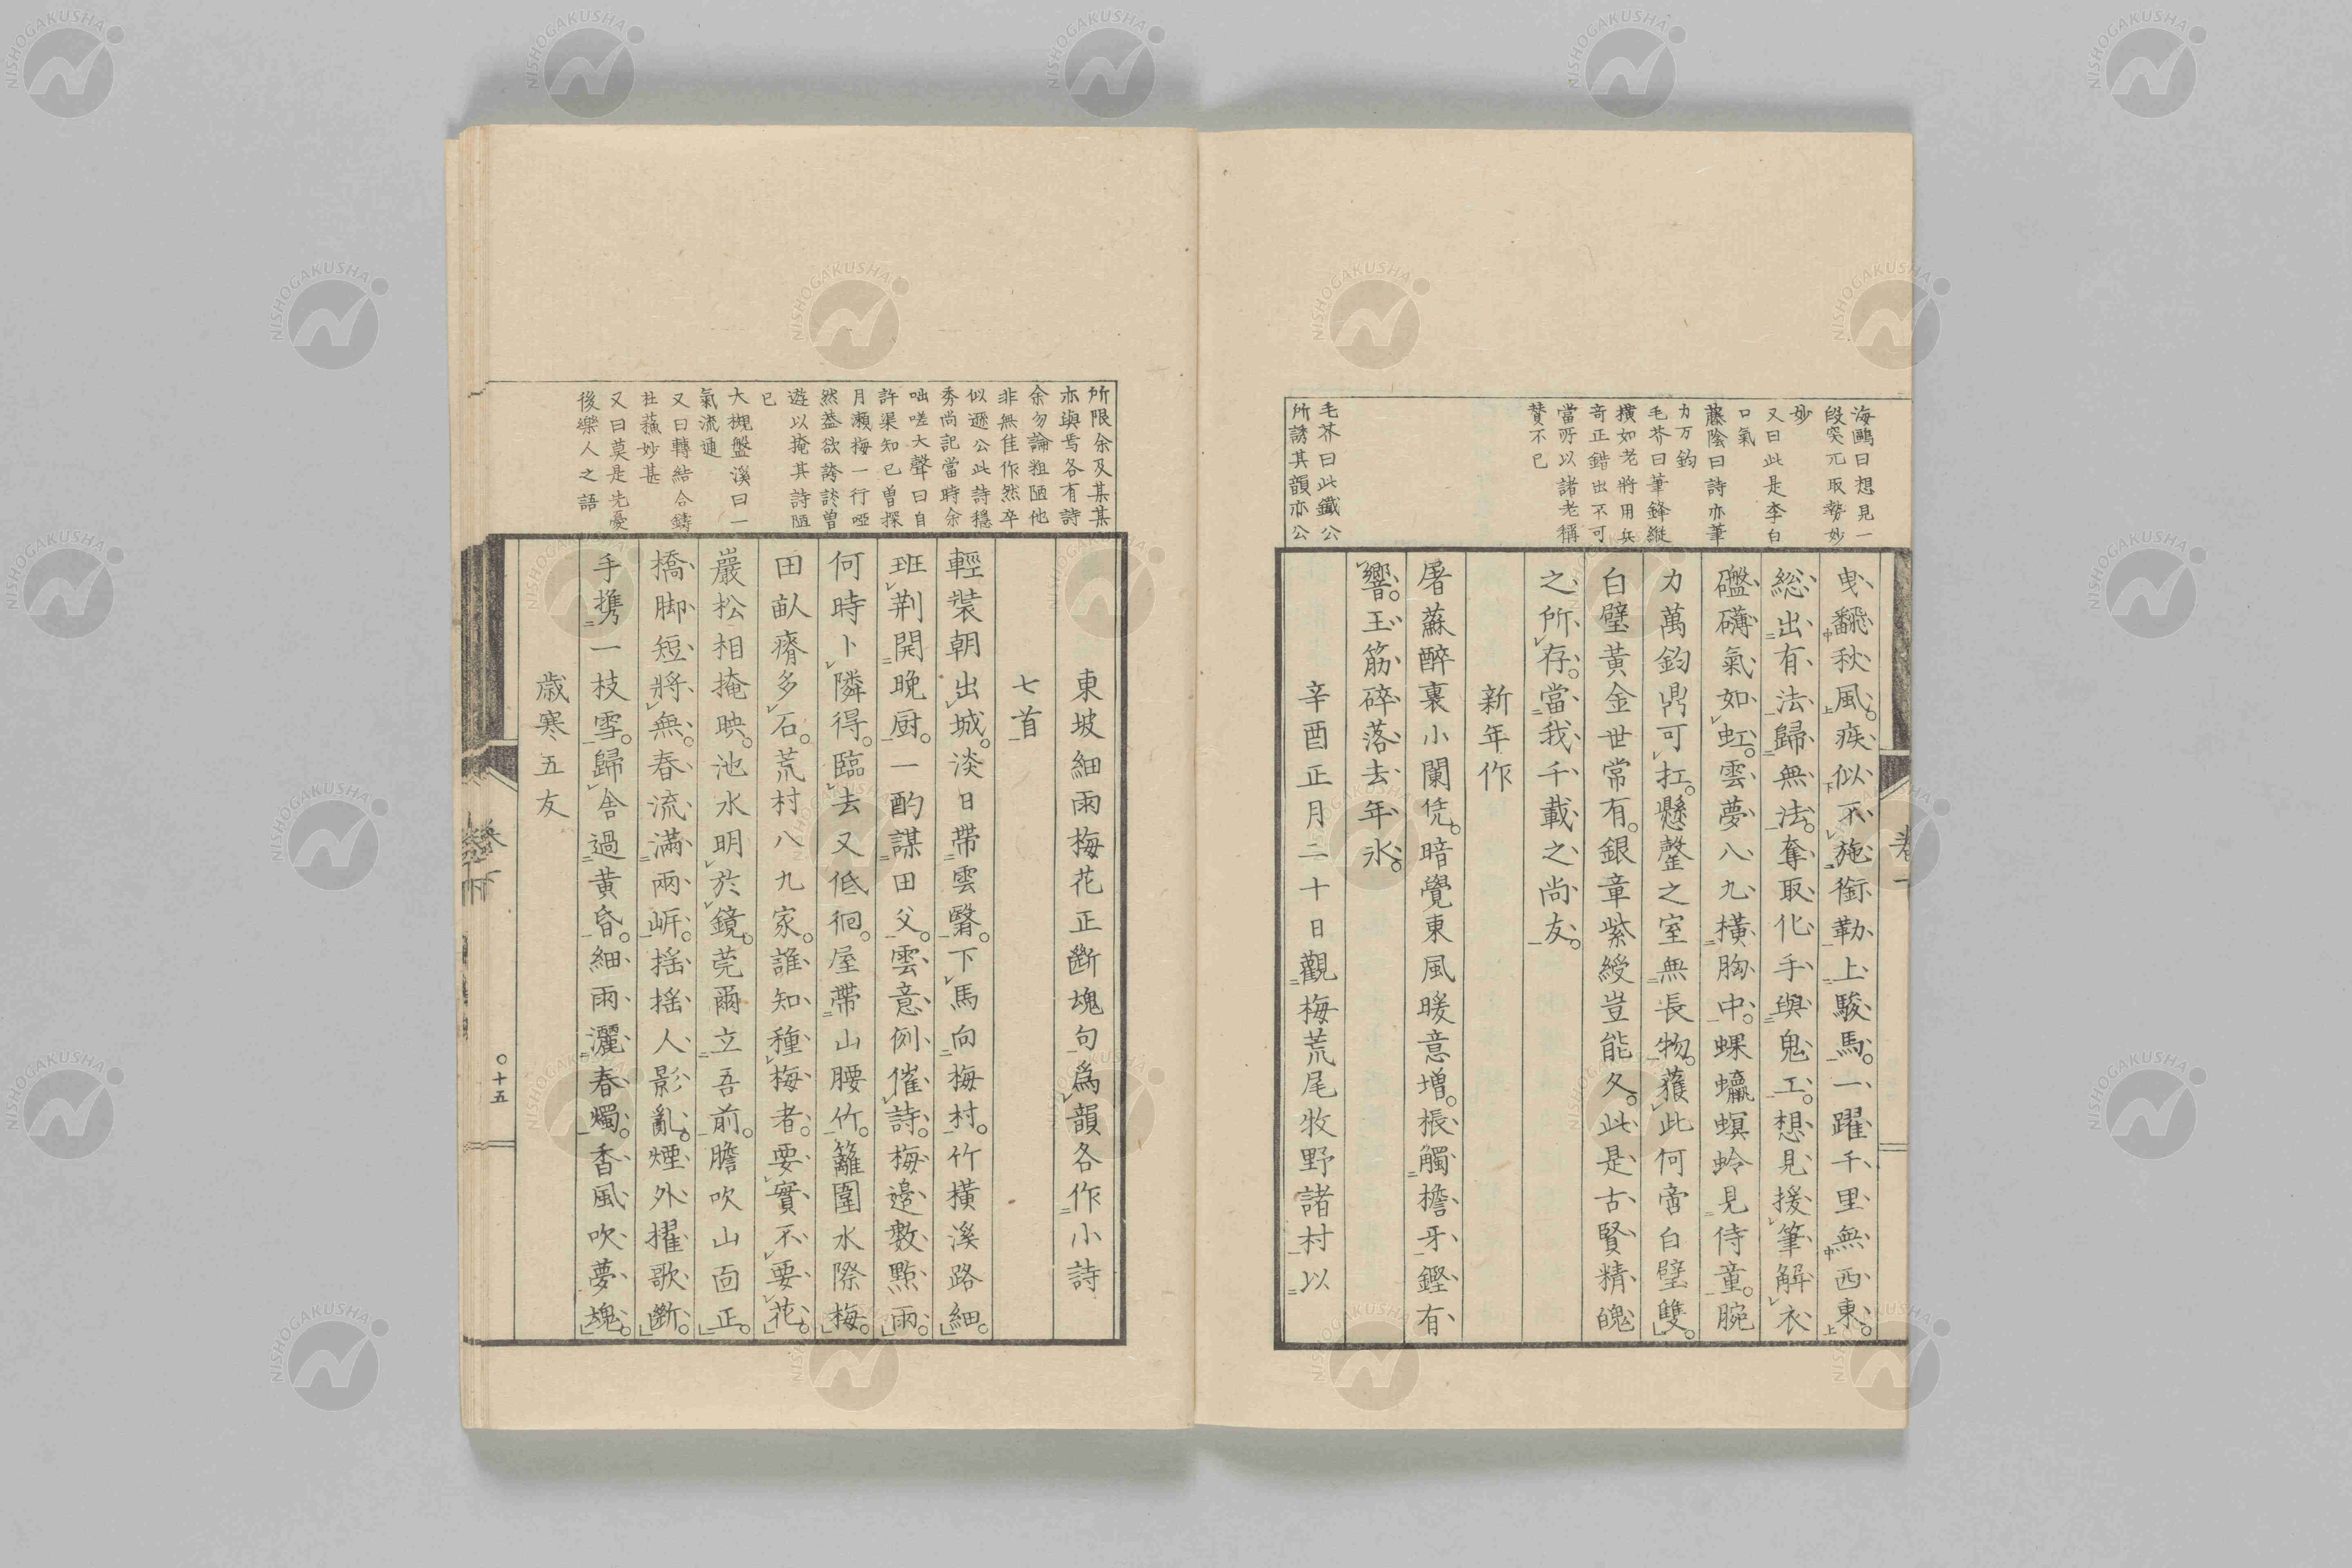 海鷗曰想見一
段突兀取勢妙
妙
又曰此是李白
口氣
藤陰曰詩亦筆
力万鈞
毛芥曰筆鋒縦
横如老將用兵
奇正錯出不可
當所以諸老稱
賛不已
毛芥曰此鐵公
所誘其韻亦公
曳翻秋風疾似不施銜勒上駿馬一躍千里無西東
総出有法歸無法奪取化手與鬼工想見援筆解衣
礚礴氣如虹雲夢八九横胸中蜾蠃螟蛉見侍童腕
力萬鈞鼎可扛懸罄之室無長物獲此何啻白璧雙
白璧黃金世常有銀章紫綬豈能久此是古賢精魄
之所存當我千載之尚友
新年作
屠蘇醉裏小闌凭暗覺東風暖意増棖觸檐牙鏗有
響玉筋碎落去年氷
辛酉正月二十日觀梅荒尾牧野諸村以
卷下
所限余及某某
亦與焉各有詩
余勿論粗陋他
非無佳作然卒
似遜公此詩穏
秀尚記當時余
咄嗟大聲曰自
許渠知已曽探
月瀬梅一行啞
然葢欲誇於曽
遊以掩其詩陋
已
大槻盤溪曰一
氣流通
又曰轉結合鑄
杜蘓妙甚
又曰莫是先憂
後樂人之語
東坡細雨梅花正斷魂句爲韻各作小詩
七首
輕裝朝出城淡日帶雲翳下馬向梅村竹橫溪路細
班荆開晚厨一酌謀田父雲意例催詩梅邊數點雨
何時卜隣得臨去又低徊屋帶山腰竹籬圍水際梅
田畝瘠多石荒村八九家誰知種梅者要實不要花
巖松相掩映池水明於鏡莞爾立吾前膽吹山面正
橋脚短將無春流滿兩岸揺揺人影亂煙外擢歌斷
手携一枝雪歸舎過黃昏細雨灑春燭香風吹夢魂
歳寒五友
卷下
十五